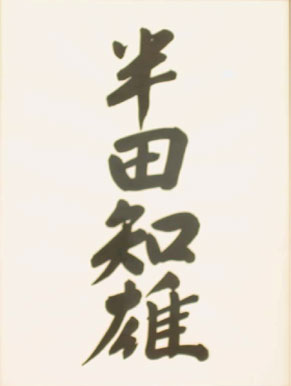 半田知雄